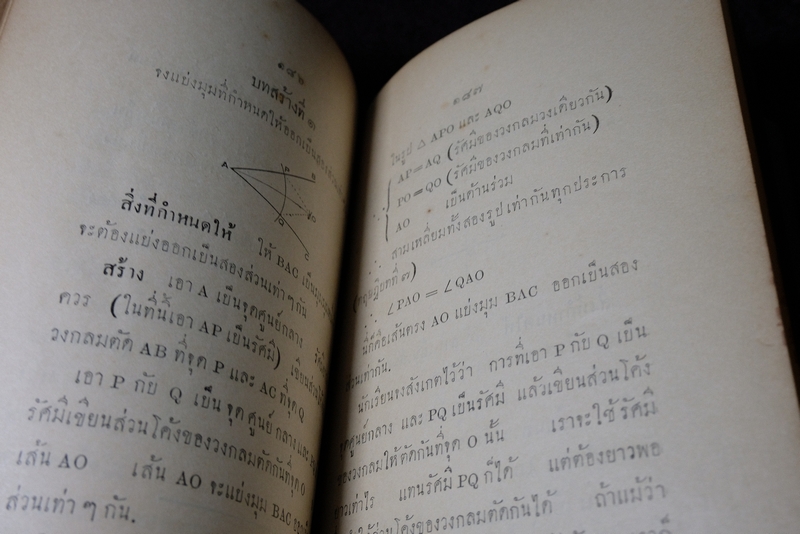 ๑๘๖
บทสร้างที่ ๑
จงแบ่งมุมที่กำหนดให้ออกเป็นสอง
A
P
B
O
Q
C
สิ่งที่กำหนดให้ ให้ BAC เป็นมุม
จะต้องแบ่งออกเป็นสองส่วนเท่า ๆ กัน
สร้าง เอา A เป็นจุดศูนย์กลาง
ควร (ในที่นี้เอา AP เป็นรัศมี) เขียน
วงกลมตัด AB ที่จุด P และ AC ที่จุด Q
เอา P กับ Q เป็นจุดศูนย์กลางและ
รัศมีเขียนส่วนโค้งของวงกลมตัดกันที่จุด O
เส้น AO เส้น AO จะแบ่งมุม BAC
ส่วนเท่า ๆ กัน.
๑๘๗
ในรูป △ APO และ AQO
AP=AQ (รัศมีของวงกลมวงเดียวกัน)
PO=QO (รัศมีของวงกลมที่เท่ากัน)
∴ AO เป็นด้านร่วม
∴ สามเหลี่ยมทั้งสองรูปเท่ากันทุกประการ
(ทฤษฎีบทที่ ๗)
∴ ∠PAO = ∠QAO
นี่ก็คือเส้นตรง AO แบ่งมุม BAC ออกเป็นสอง
ส่วนเท่ากัน.
นักเรียนจงสังเกตไว้ว่า การที่เอา P กับ Q เป็น
จุดศูนย์กลาง และ PQ เป็นรัศมี แล้วเขียนส่วนโค้ง
ของวงกลมให้ตัดกันที่จุด O นั้น เราจะใช้รัศมี
ยาวเท่าไร แทนรัศมี PQ ก็ได้ แต่ต้องยาวพอ
ให้ส่วนโค้งของวงกลมตัดกันได้ ถ้าแม้ว่า